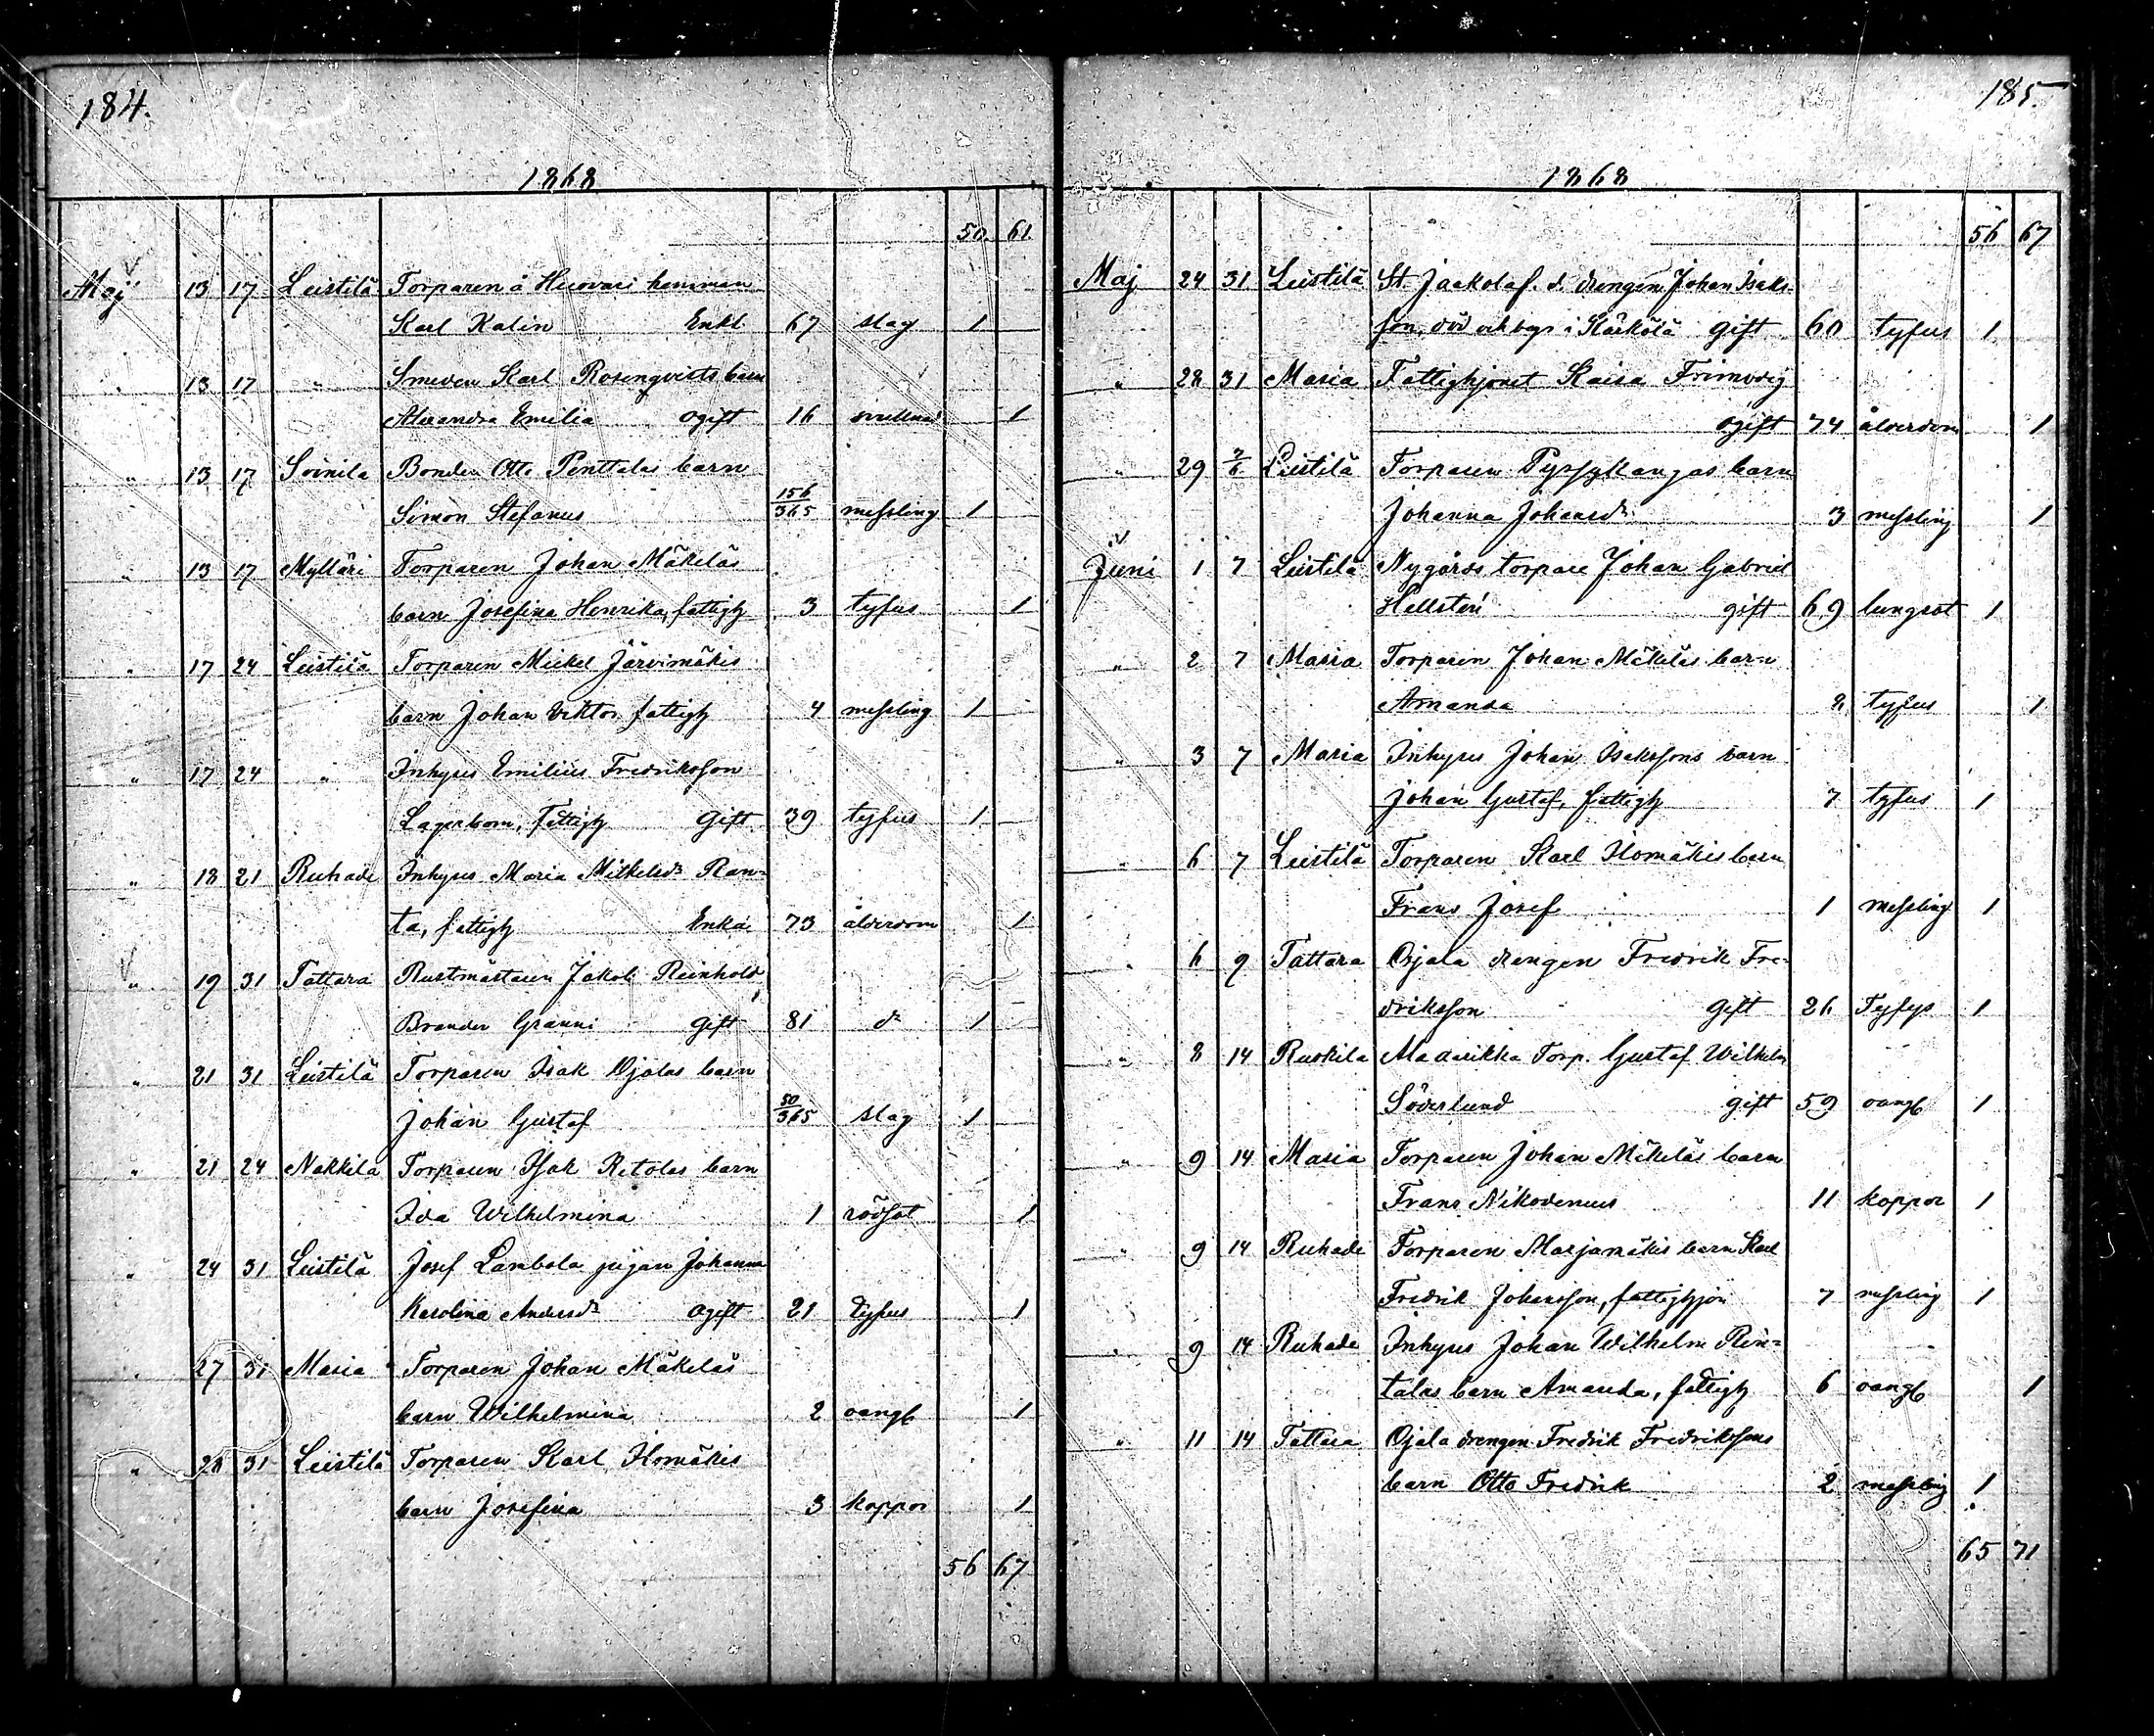 184.
1868
50 61
Maj 13 17 Leistilä Torparen å Hiirovuori hemman
Karl Kalin Enkl. 67 slag 1
" 13 17 " Smeden Karl Rosenqvists barn
Alexandra Emilia ogift 16 1
" 13 17 Soinila Bonden Otto Penttalas barn
Simon Stefanus 156/365 messling 1
" 13 17 Mylläri Torparen Johan Mäkeläs
barn Josefina Henrika, fattigh 3 tyfus 1
" 17 24 Leistilä Torparen Mickel Järvimäkis
barn Johan Viktor fattigh 4 messling 1
" 17 24 " Inhyses Emilius Fredriksson
Lagerbom, fattigh Gift 39 tyfus 1
" 18 21 Ruhade Inhyses Maria Mikkelsdr Ran=
ta, fattigh Enka 73 ålderdom 1
" 19 31 Tattara Rustmästaren Jakob Reinhold
Brander Granni Gift 81 do 1
" 21 31 Leistilä Torparen Isak Ojalas barn
Johan Gustaf 50/365 slag 1
" 21 24 Nakkila Torparen Isak Ritolas barn
Ida Wilhelmina 1 rödsot 1
" 24 31 Leistilä Josef Lambola pigan Johanna
Karolina Andersdr ogift 21 Tyfus 1
" 27 31 Masia Torparen Johan Mäkeläs
barn Wilhelmina 2 oangf 1
" 28 31 Leistilä Torparen Karl Ilomäkis
barn Josefina 3 koppor 1
56 67
185.
1868
56 67
Maj 24 31 Leistilä St. Jaakola f. d. drengen Johan Isaks
son, död och begr i Kärkölä gift 60 tyfus 1
" 28 31 Masia Fattighjonet Kaisa Frimodig
ogift 74 ålderdom 1
" 29 7/6 Leistilä Torparen Pyssykangas barn
Johanna Johansdr 3 messling 1
Juni 1 7 Leistilä Nygårds torpare Johan Gabriel
Hellsten gift 69 lungsot 1
" 2 7 Masia Torparen Johan Mäkeläs barn
Amanda 8 tyfus 1
" 3 7 Masia Inhyses Johan Isakssons barn
Johan Gustaf, fattigh 7 tyfus 1
" 6 7 Leistilä Torparen Karl Ilomäkis barn
Frans Josef 1 messling 1
" 6 9 Tattara Ojala drengen Fredrik Fre-
driksson gift 26 Tyfys 1
" 8 14 Ruskila Madarikka Torp. Gustaf Wilhelm
Söderlund gift 59 oangf 1
" 9 14 Masia Torparen Johan Mäkeläs barn
Frans Nikodemus 11 koppor 1
" 9 14 Ruhade Torparen Marjamäkis barn Karl
Fredrik Johansson, fattighjon 7 messling 1
" 9 14 Ruhade Inhyses Johan Wilhelm Rin=
talas barn Amanda, fattigh 6 oangf 1
" 11 14 Tattara Ojala drengen Fredrik Fredrikssons
barn Otto Fredrik 2 messling 1
65 71